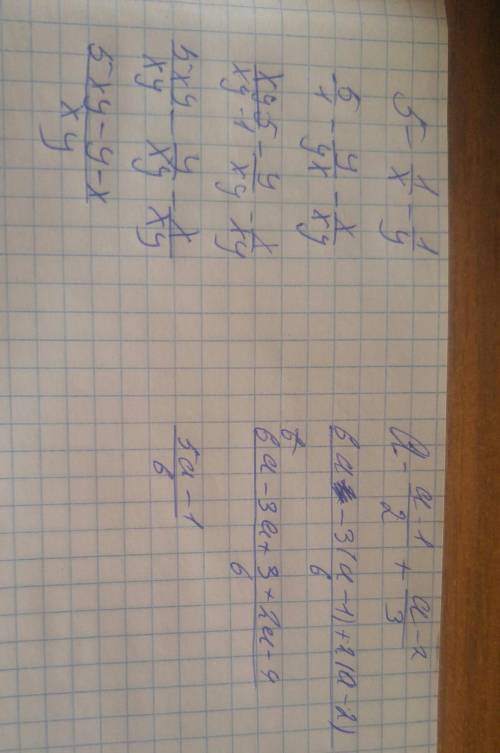 5 - 1/x - 1/y
5/1 - y/yx - x/xy
xy5/xy·1 - y/xy - x/xy
5xy/xy - y/xy - x/xy
5xy - y - x / xy
a - a-1/2 + a-2/3
6a - 3(a-1) + 2(a-2) / 6
6a - 3a + 3 + 2a - 4 / 6
5a - 1 / 6